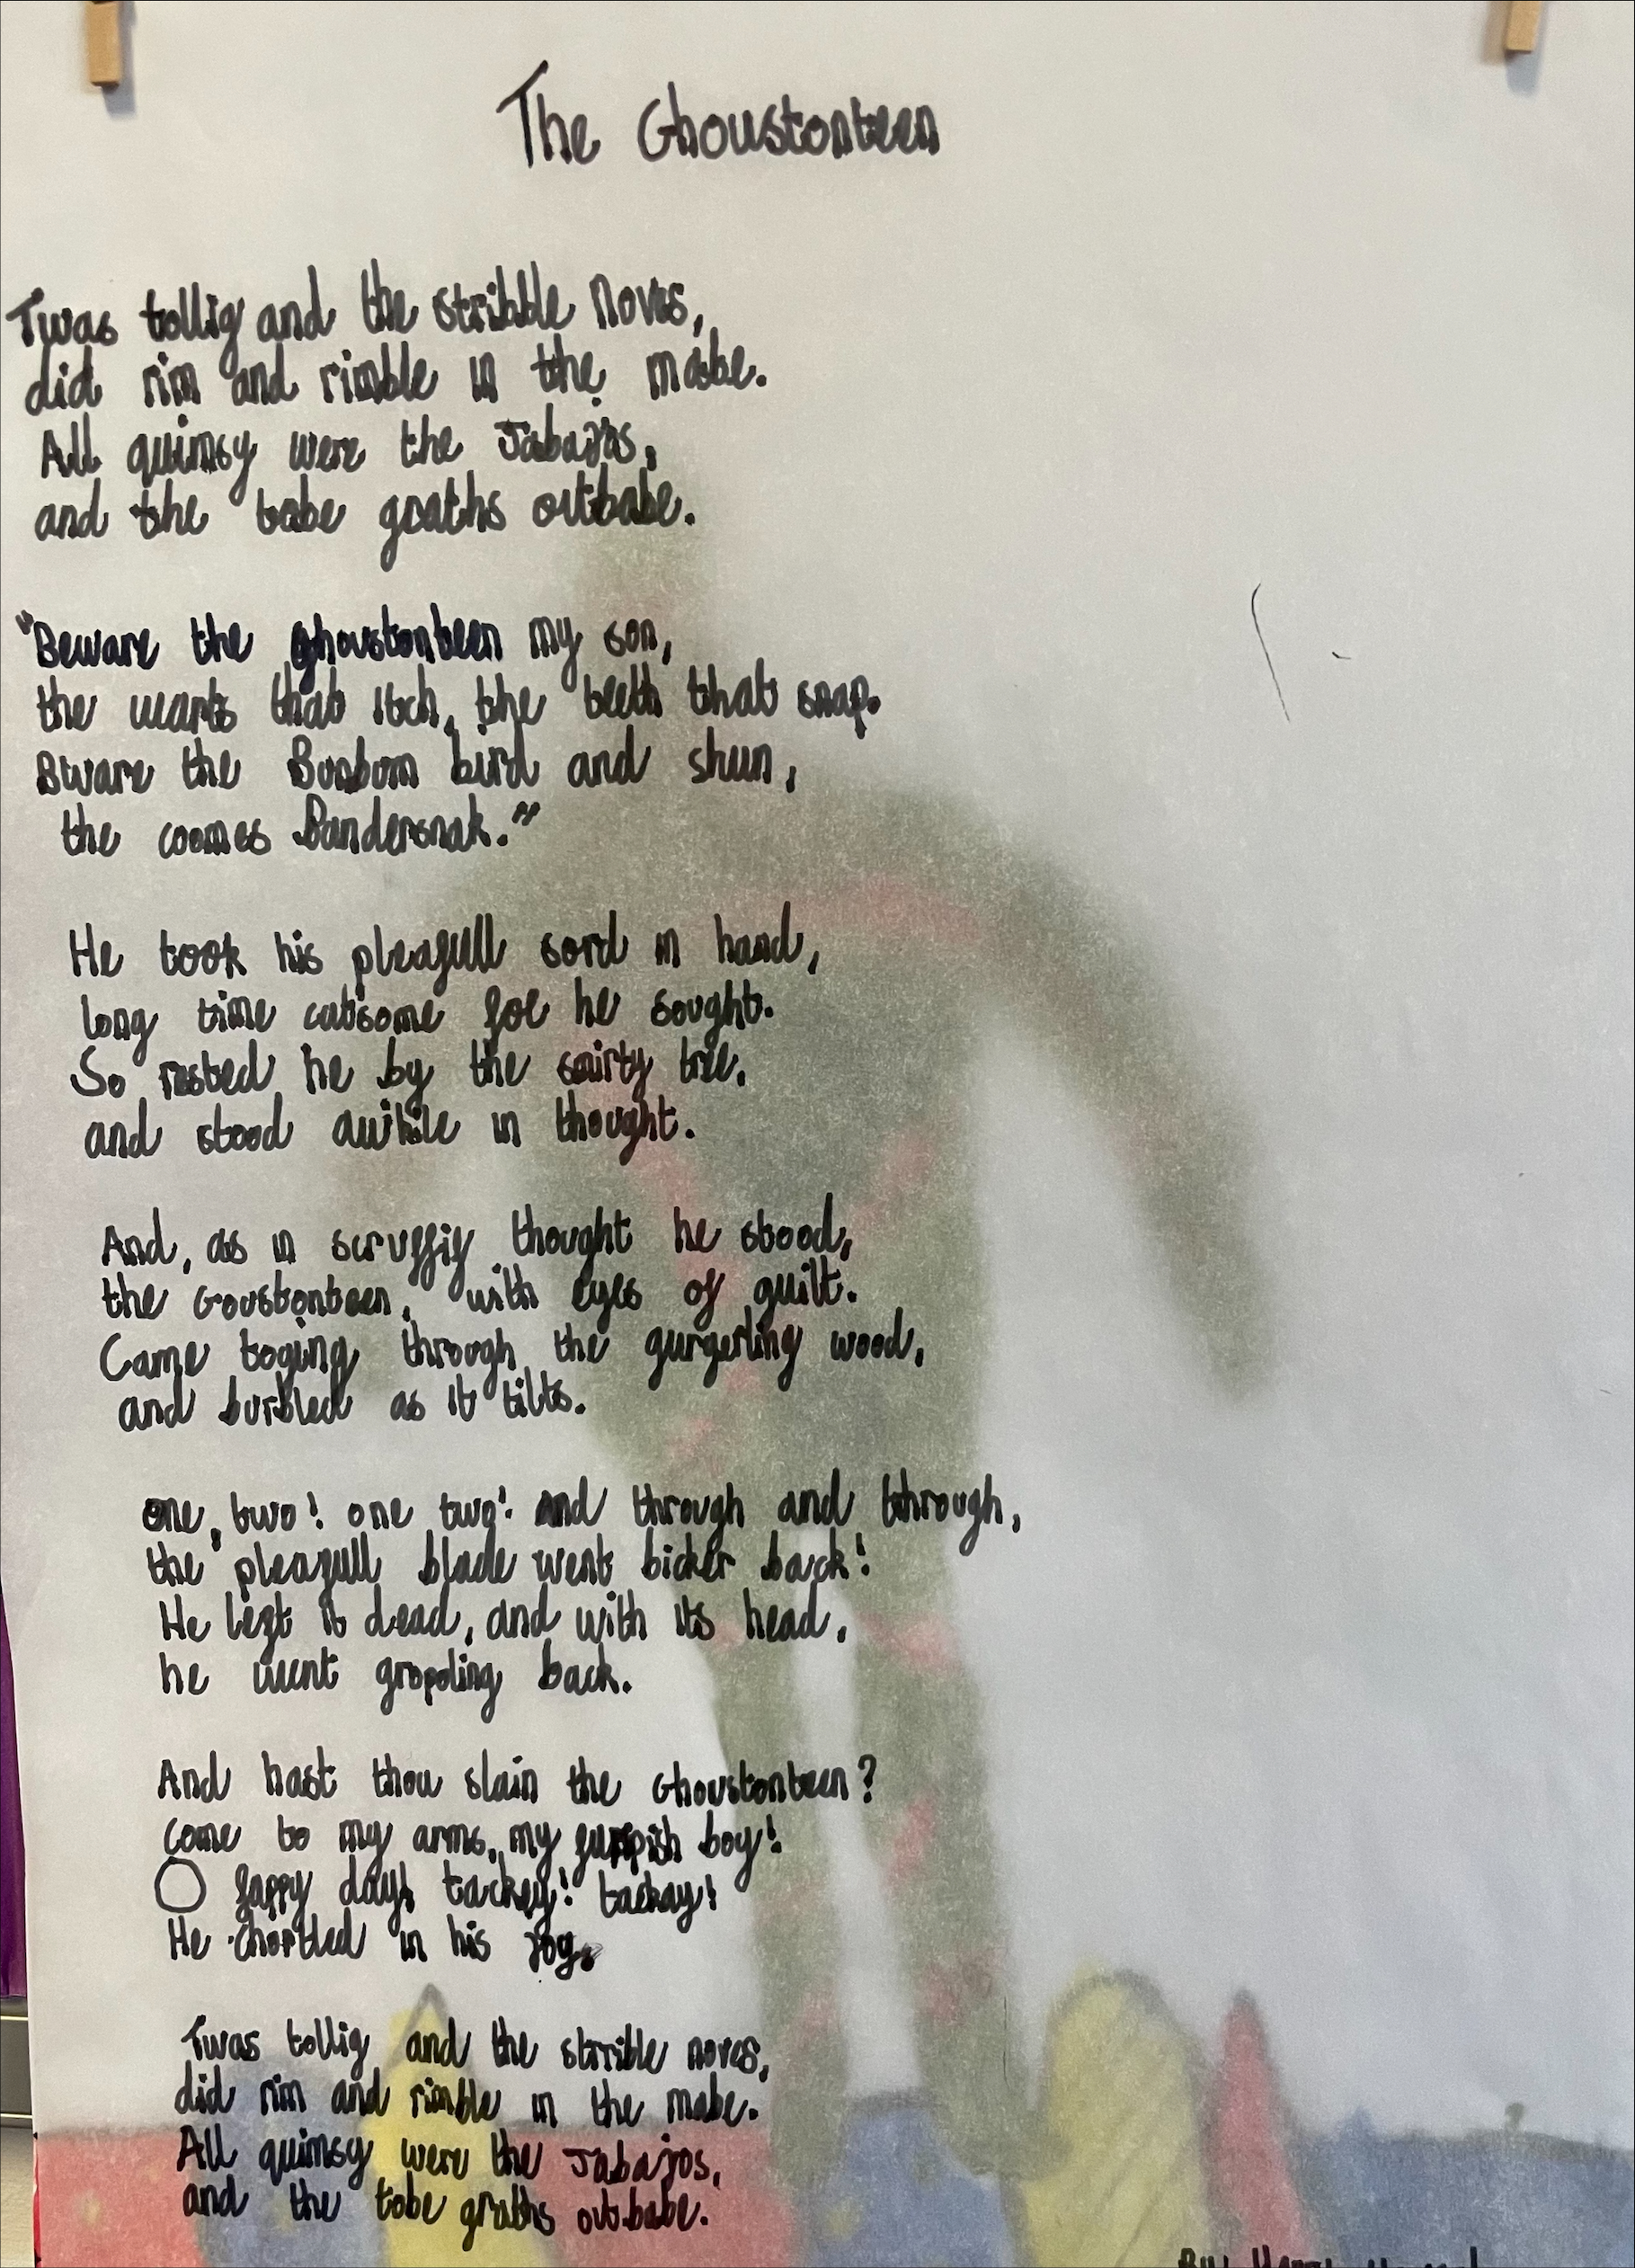 The Ghoustonteen
Twas tollig and the stribble noves,
did rim and rimble in the mabe.
All quimsy were the Jabajos,
and the tobe graths outbabe.
"Beware the ghoustonteen my son,
the warts that itch, the teeth that snap.
Bware the Bonbom bird and shun,
the coomes Bandersnak."
He took his pleafull sord in hand,
long time catsome foe he sought.
So rested he by the snirty tree,
and stood awhile in thought.
And, as in scruffiy thought he stood,
the Goustonteen, with eyes of guilt.
Came toging through the gurgerling wood,
and burbled as it tilts.
one, two! one two! and through and through,
the pleafull blade went bicker back!
He left it dead, and with its head,
he went gropoling back.
And hast thou slain the Ghoustonteen?
come to my arms, my boy!
O fappy day! tackey! tackay!
He chortled in his joy.
Twas tollig and the strible noves,
did rim and rimble in the mabe.
All quimsy were the Jabajos,
and the tobe graths outbabe.
By: Harry